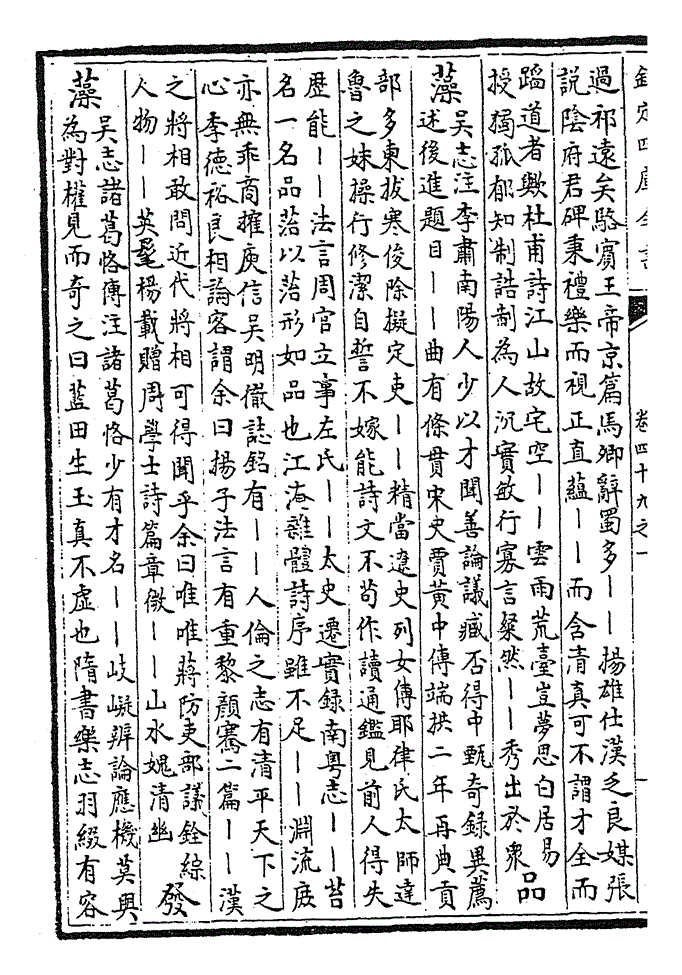 欽定四庫全書
卷四十九之一
過祁遠矣駱賓王帝京篇馬卿辭蜀多——揚雄仕漢乏良媒張
説隂府君碑秉禮樂而視正直藴——而含清真可不謂才全而
蹈道者歟杜甫詩江山故宅空——雲雨荒臺豈夢思白居易
授獨孤郁知制誥制為人沉實敏行寡言粲然——秀出於衆
品
藻
吴志注李肅南陽人少以才聞善論議臧否得中甄奇錄異薦
述後進題目——曲有條貫宋史賈黄中傳端拱二年再典貢
部多柬拔寒俊除擬定吏——精當遼史列女傳耶律氏太師達
魯之妹操行修潔自誓不嫁能詩文不苟作讀通鑑見前人得失
歴能——法言周官立事左氏——太史遷實録南粤志——苔
名一名品菭以菭形如品也江淹雜體詩序雖不足——淵流庶
亦無乖商搉庾信吴明徹誌銘有——人倫之志有清平天下之
心李德裕良相論客謂余曰揚子法言有重黎顔騫二篇——漢
之將相敢問近代將相可得聞乎余曰唯唯蔣防吏部議銓綜
人物——英髦楊載贈周學士詩篇章傚——山水媿清幽
發
藻
吴志諸葛恪傳注諸葛恪少有才名——岐嶷辨論應機莫與
為對權見而奇之曰藍田生玉真不虚也隋書樂志羽綴有容